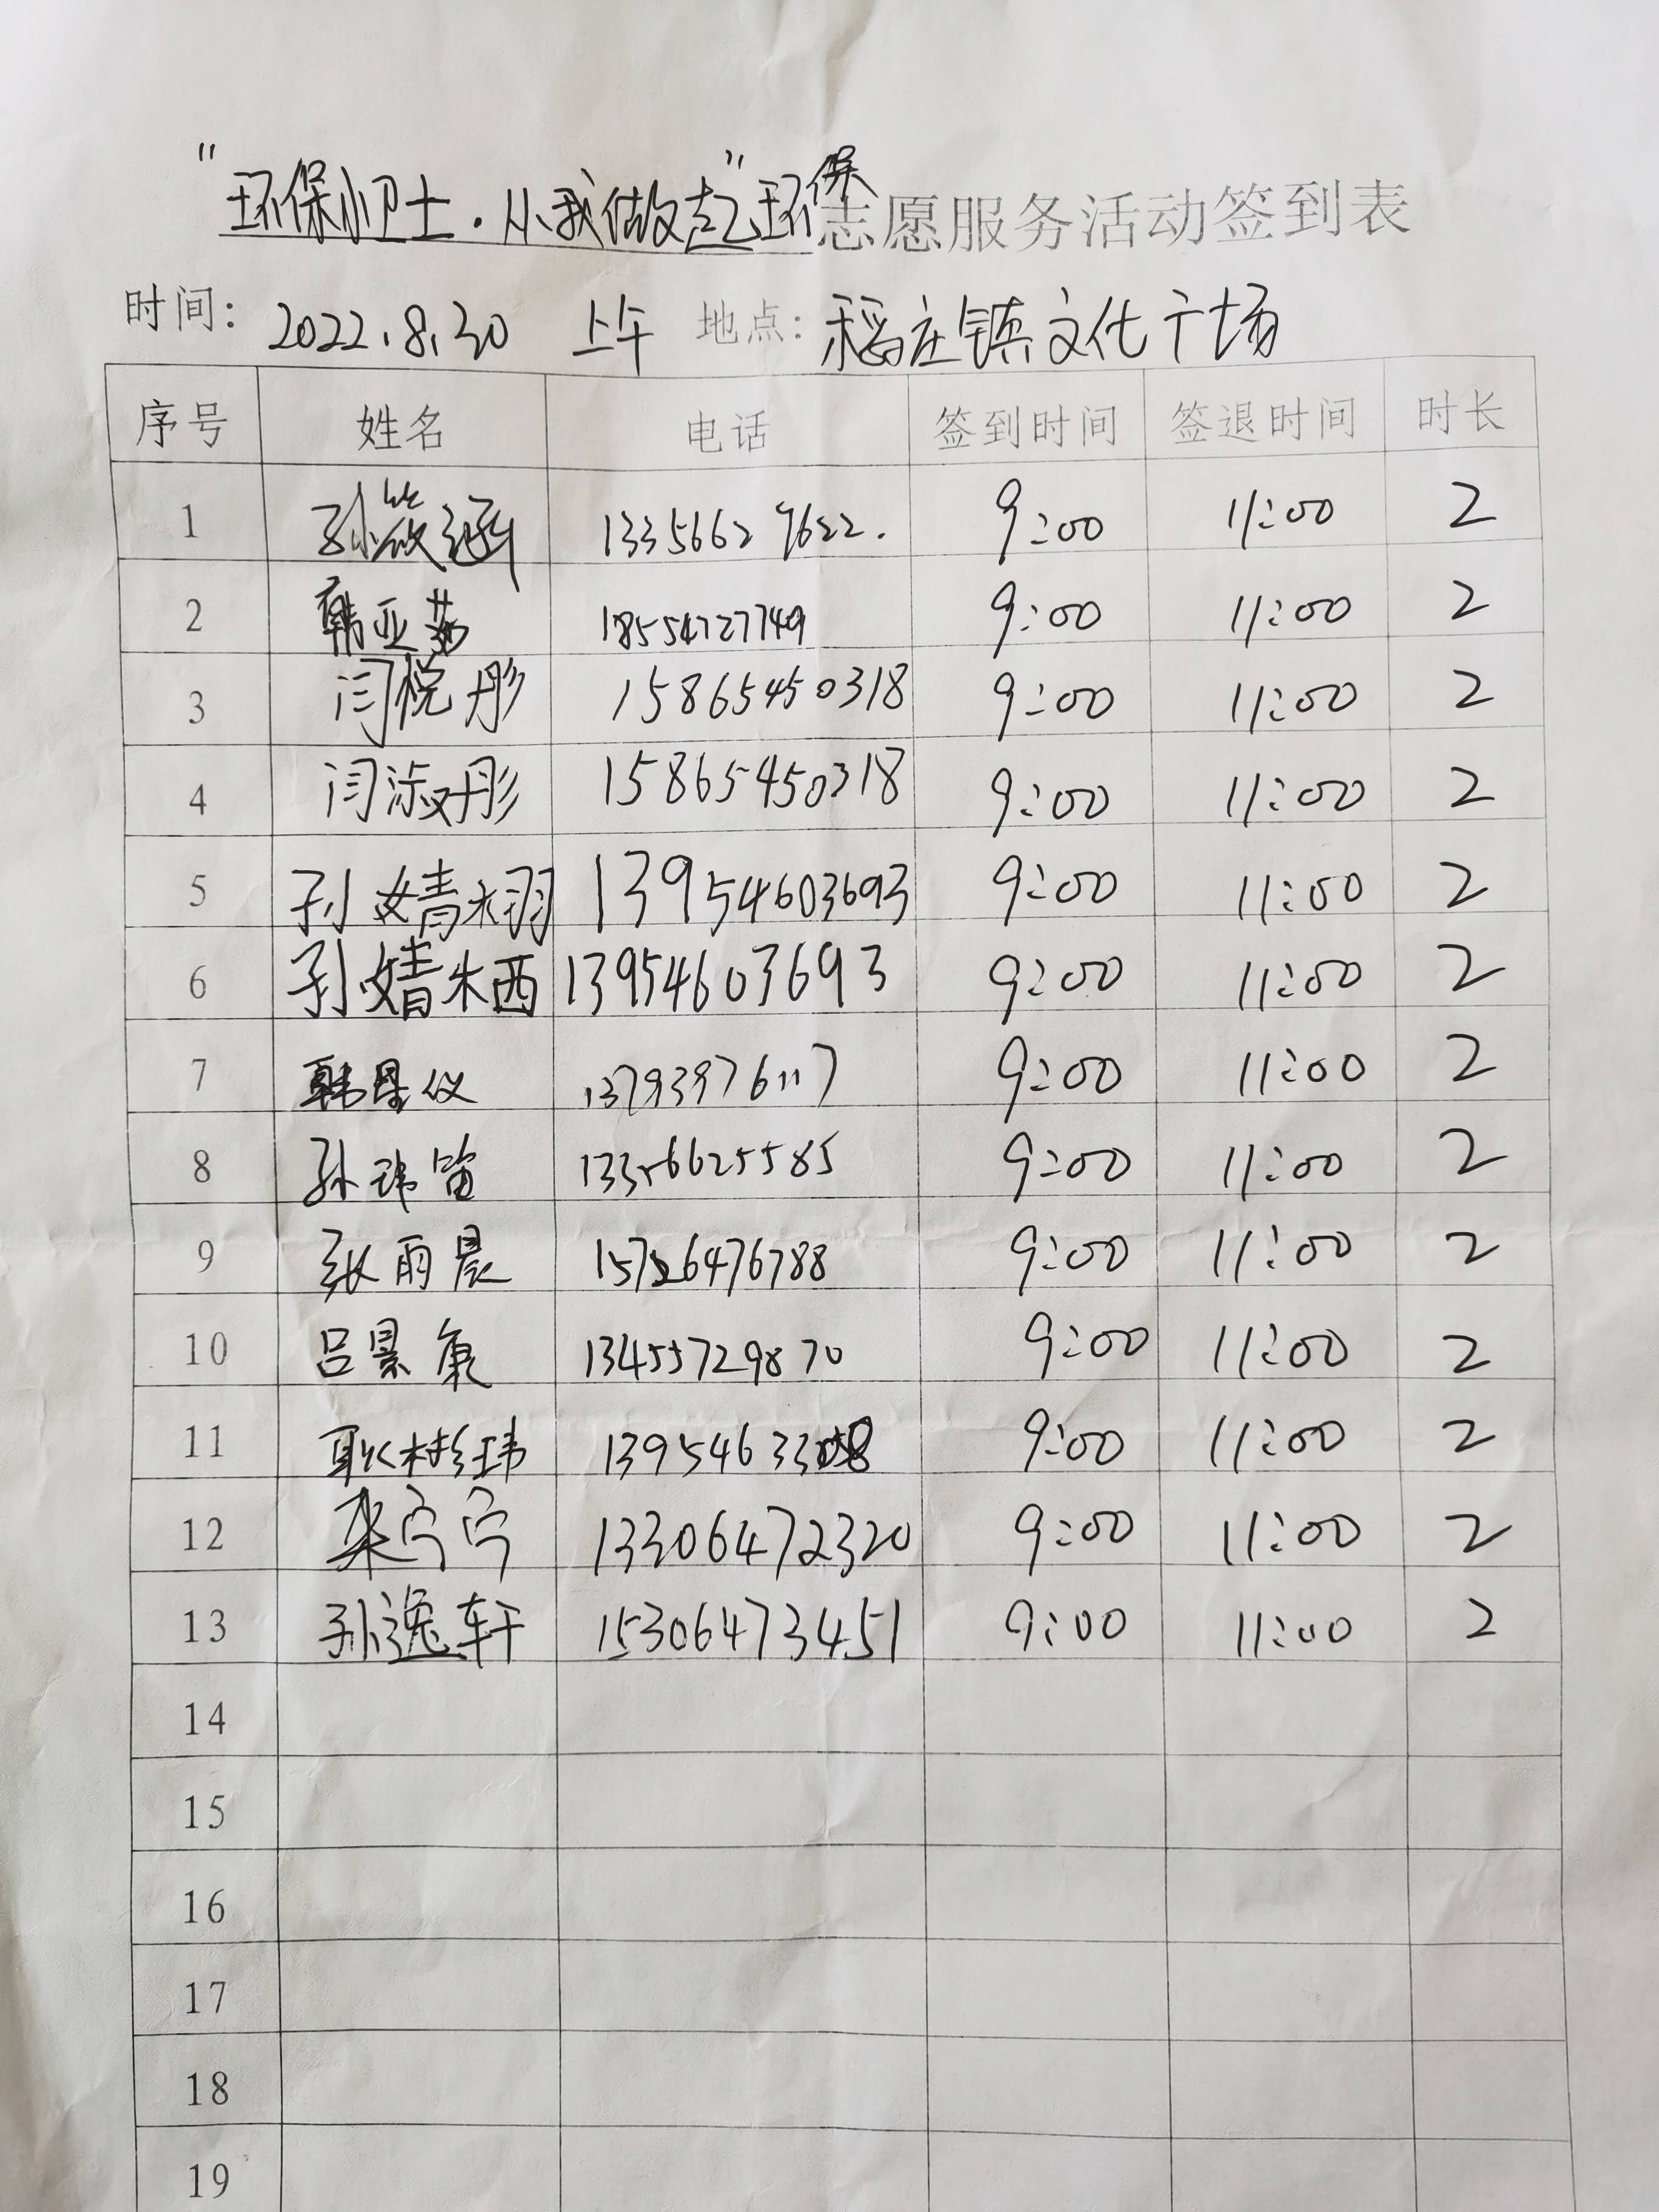 "环保小卫士·从我做起"环保志愿服务活动签到表
时间: 2022.8.30 上午 地点: 稻庄镇文化广场
序号 姓名 电话 签到时间 签退时间 时长
1 孙筱涵 13356629622. 9:00 11:00 2
2 韩亚茹 18554727749 9:00 11:00 2
3 闫悦彤 15865450318 9:00 11:00 2
4 闫淑彤 15865450318 9:00 11:00 2
5 孙婧栩 13954603693 9:00 11:00 2
6 孙婧栖 13954603693 9:00 11:00 2
7 韩昱仪 13793976117 9:00 11:00 2
8 孙玮笛 13356625585 9:00 11:00 2
9 张雨晨 15726476788 9:00 11:00 2
10 吕景 13455729870 9:00 11:00 2
11 耿彬玮 9:00 11:00 2
12 宁宁 13306472320 9:00 11:00 2
13 孙逸轩 15306473451 9:00 11:00 2
14
15
16
17
18
19